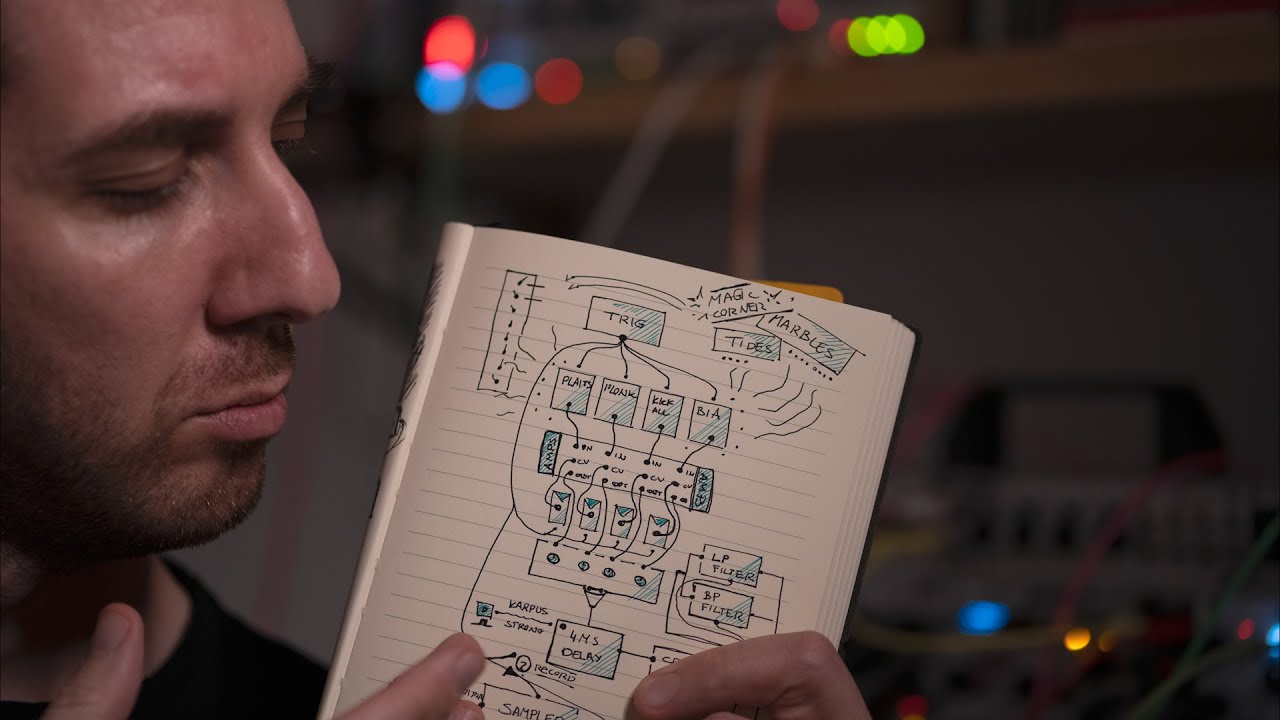 MAGIC
CORNER
TRIG
TIDES
MARBLES
PLAITS
PLONK
KICK
ALL
BIA
AMPS
IN
IN
IN
IN
CV
CV
CV
CV
OUT
OUT
OUT
AMPS
LP
FILTER
BP
FILTER
KARPUS
STRONG
4MS
DELAY
RECORD
SAMPLER